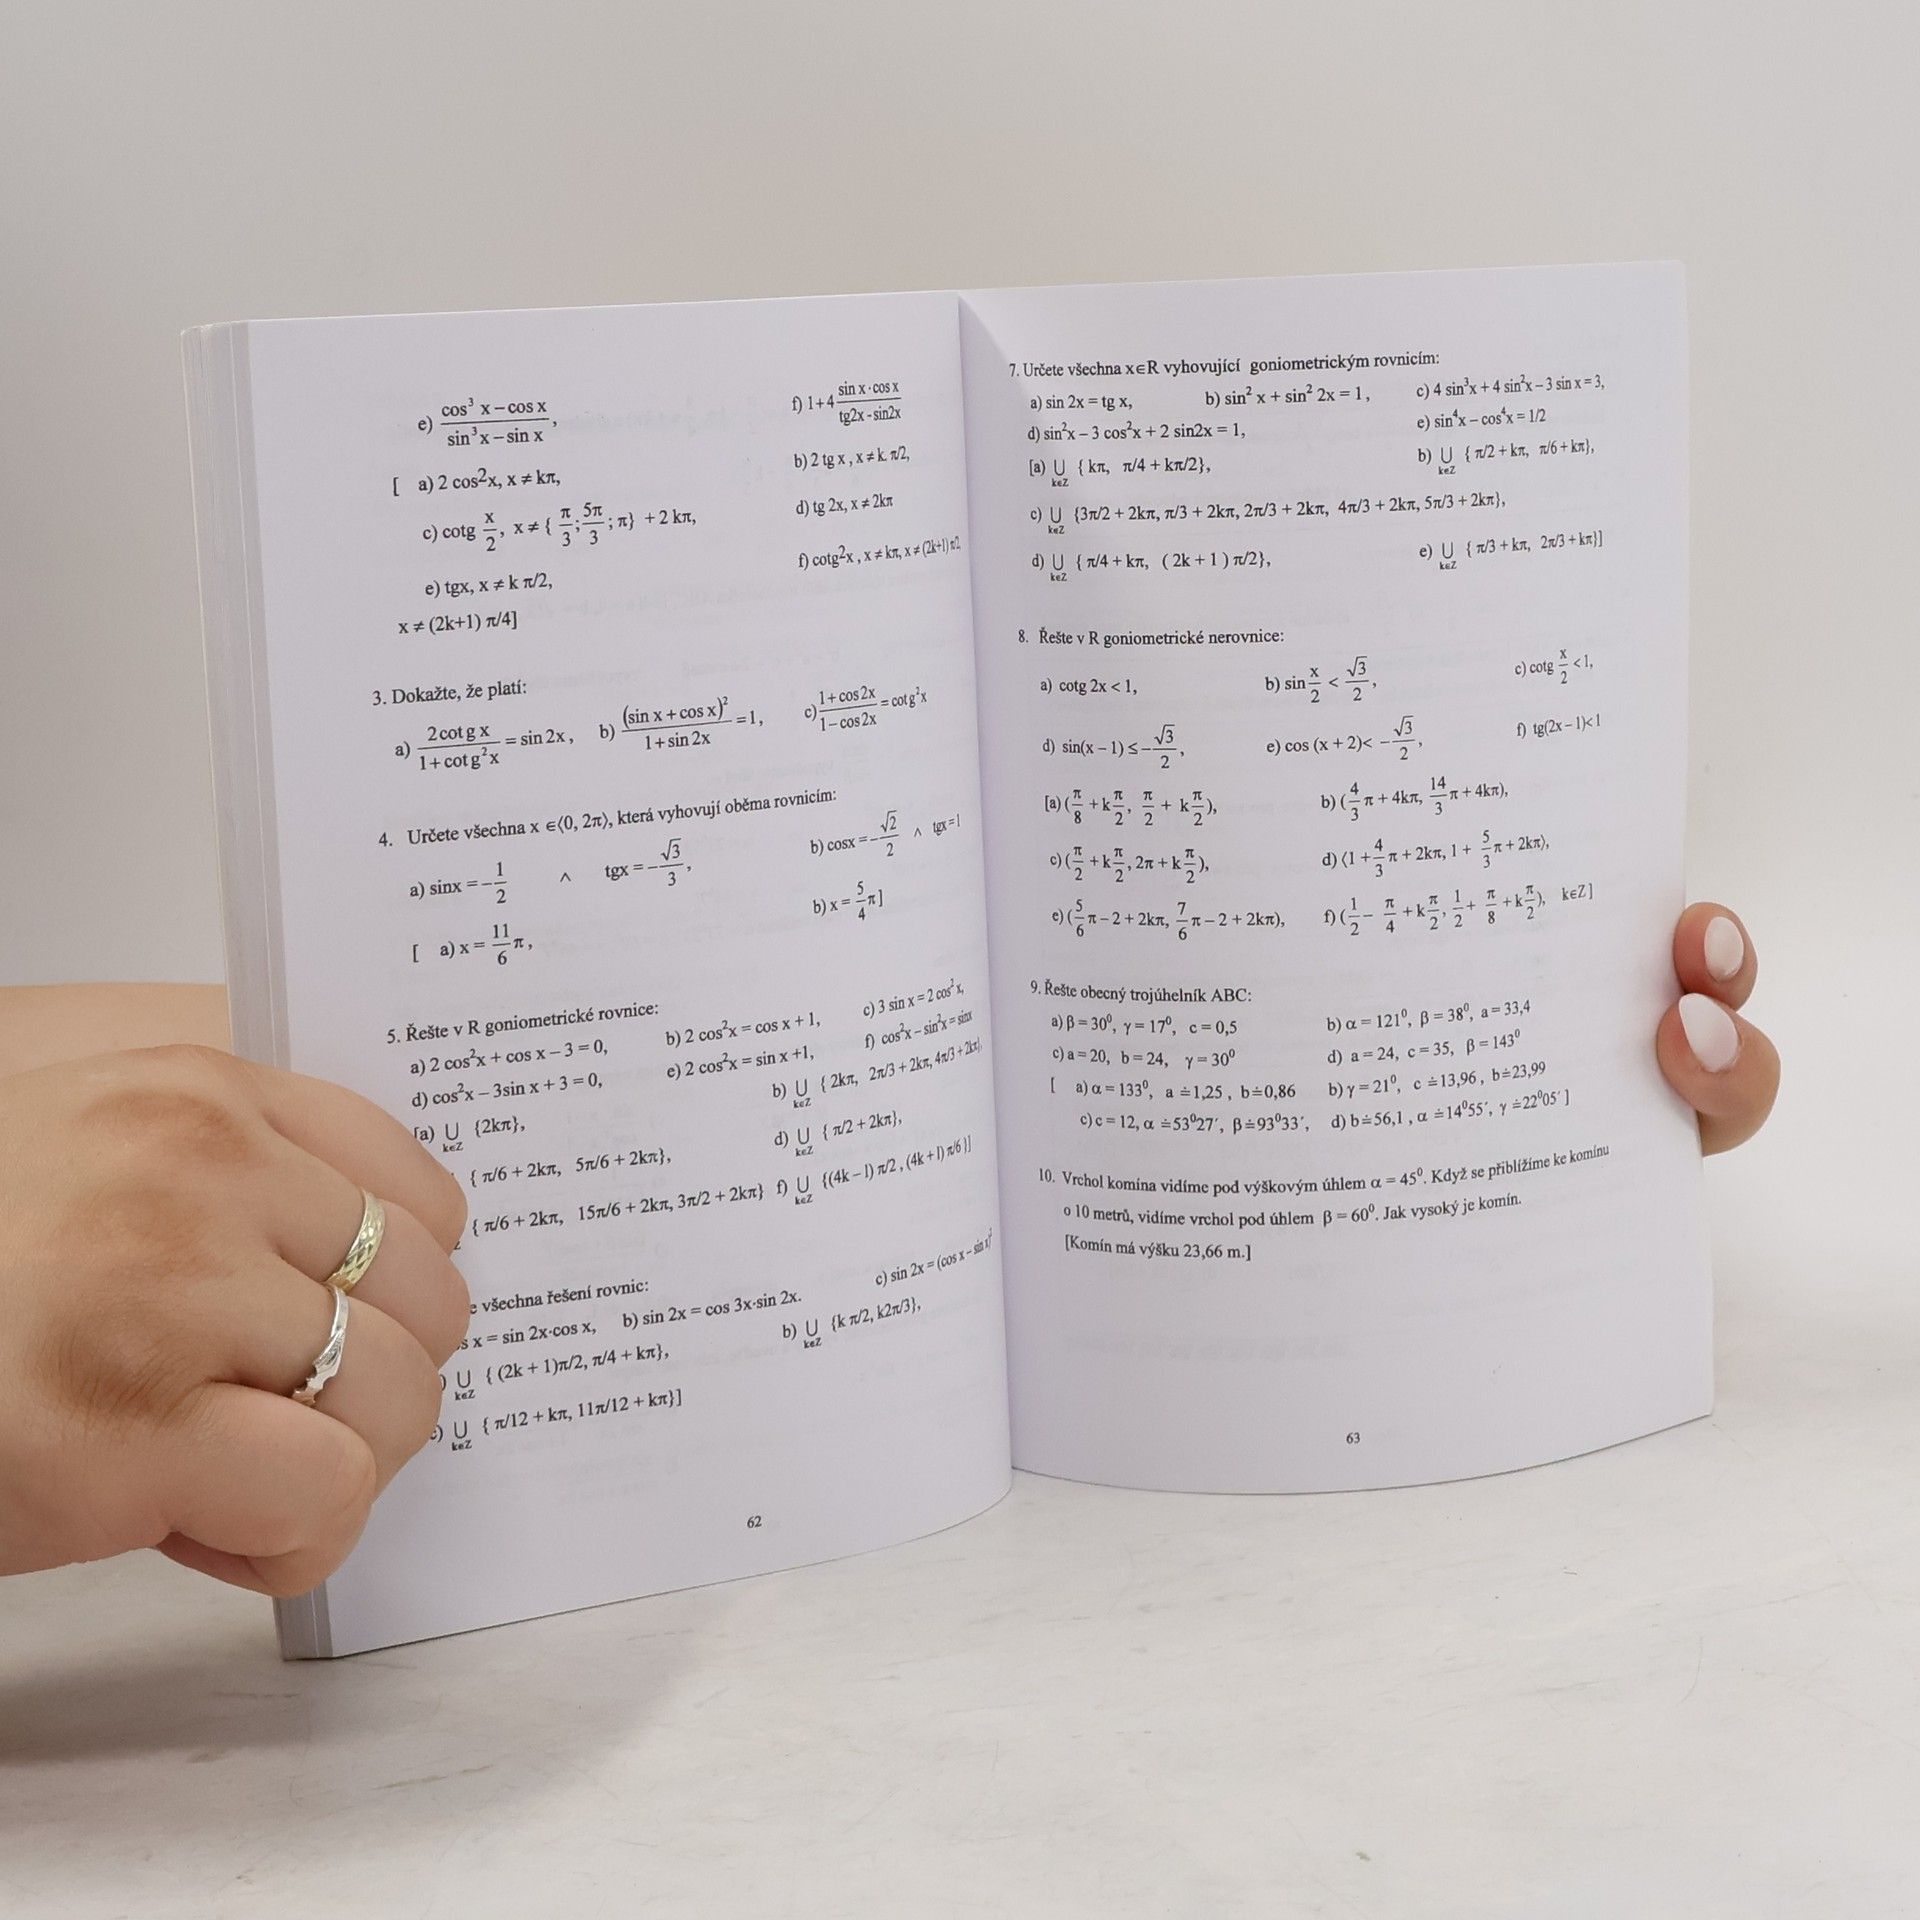 e) cos³ x – cos x / sin³ x – sin x , f) 1+4 sin x · cos x / tg2x - sin2x
[ a) 2 cos²x, x ≠ kπ, b) 2 tg x , x ≠ k. π/2,
c) cotg x/2 , x ≠ { π/3 ; 5π/3 ; π} + 2 kπ, d) tg 2x, x ≠ 2kπ
e) tgx, x ≠ k π/2, f) cotg²x , x ≠ kπ, x ≠ (2k+1) π/2,
x ≠ (2k+1) π/4]
3. Dokažte, že platí:
a) 2cotg x / 1+cotg²x = sin 2x , b) (sin x + cos x)² / 1+ sin 2x = 1, c) 1+cos2x / 1–cos2x = cotg²x
4. Určete všechna x ∈⟨0, 2π⟩, která vyhovují oběma rovnicím:
a) sinx = – 1/2 ∧ tgx = – √3/3 , b) cosx = – √2/2 ∧ tgx =1
[ a) x = 11/6 π , b) x = 5/4 π ]
5. Řešte v R goniometrické rovnice:
a) 2 cos²x + cos x – 3 = 0, b) 2 cos²x = cos x + 1, c) 3 sin x = 2 cos² x,
d) cos²x – 3sin x + 3 = 0, e) 2 cos²x = sin x +1, f) cos²x – sin²x = sinx
[a) ∪ k∈Z {2kπ}, b) ∪ k∈Z { 2kπ, 2π/3 + 2kπ, 4π/3 + 2kπ},
{ π/6 + 2kπ, 5π/6 + 2kπ}, d) ∪ k∈Z { π/2 + 2kπ},
{ π/6 + 2kπ, 15π/6 + 2kπ, 3π/2 + 2kπ} f) ∪ k∈Z {(4k – 1) π/2 , (4k + 1) π/6 }]
všechna řešení rovnic:
x = sin 2x·cos x, b) sin 2x = cos 3x·sin 2x. c) sin 2x = (cos x – sin x)²
) ∪ k∈Z { (2k + 1)π/2, π/4 + kπ}, b) ∪ k∈Z {k π/2, k2π/3},
c) ∪ k∈Z { π/12 + kπ, 11π/12 + kπ}]
62
7. Určete všechna x∈R vyhovující goniometrickým rovnicím:
a) sin 2x = tg x, b) sin² x + sin² 2x = 1 , c) 4 sin³x + 4 sin²x – 3 sin x = 3,
d) sin²x – 3 cos²x + 2 sin2x = 1, e) sin⁴x – cos⁴x = 1/2
[a) ∪ k∈Z { kπ, π/4 + kπ/2}, b) ∪ k∈Z { π/2 + kπ, π/6 + kπ},
c) ∪ k∈Z {3π/2 + 2kπ, π/3 + 2kπ, 2π/3 + 2kπ, 4π/3 + 2kπ, 5π/3 + 2kπ},
d) ∪ k∈Z { π/4 + kπ, ( 2k + 1 ) π/2}, e) ∪ k∈Z { π/3 + kπ, 2π/3 + kπ}]
8. Řešte v R goniometrické nerovnice:
a) cotg 2x < 1, b) sin x/2 < √3/2 , c) cotg x/2 < 1,
d) sin(x – 1) ≤ – √3/2 , e) cos (x + 2)< – √3/2 , f) tg(2x – 1)< 1
[a) ( π/8 + k π/2 , π/2 + k π/2 ), b) ( 4/3 π + 4kπ, 14/3 π + 4kπ),
c) ( π/2 + k π/2 , 2π + k π/2 ), d) ⟨1 + 4/3 π + 2kπ, 1 + 5/3 π + 2kπ⟩,
e) ( 5/6 π – 2 + 2kπ, 7/6 π – 2 + 2kπ), f) ( 1/2 – π/4 + k π/2 , 1/2 + π/8 + k π/2 ), k∈Z ]
9. Řešte obecný trojúhelník ABC:
a) β = 30⁰, γ = 17⁰, c = 0,5 b) α = 121⁰, β = 38⁰, a = 33,4
c) a = 20, b = 24, γ = 30⁰ d) a = 24, c = 35, β = 143⁰
[ a) α = 133⁰, a ≐ 1,25 , b ≐ 0,86 b) γ = 21⁰, c ≐ 13,96 , b ≐ 23,99
c) c = 12, α ≐ 53⁰27´, β ≐ 93⁰33´, d) b ≐ 56,1 , α ≐ 14⁰55´, γ ≐ 22⁰05´ ]
10. Vrchol komína vidíme pod výškovým úhlem α = 45⁰. Když se přiblížíme ke komínu
o 10 metrů, vidíme vrchol pod úhlem β = 60⁰. Jak vysoký je komín.
[Komín má výšku 23,66 m.]
63